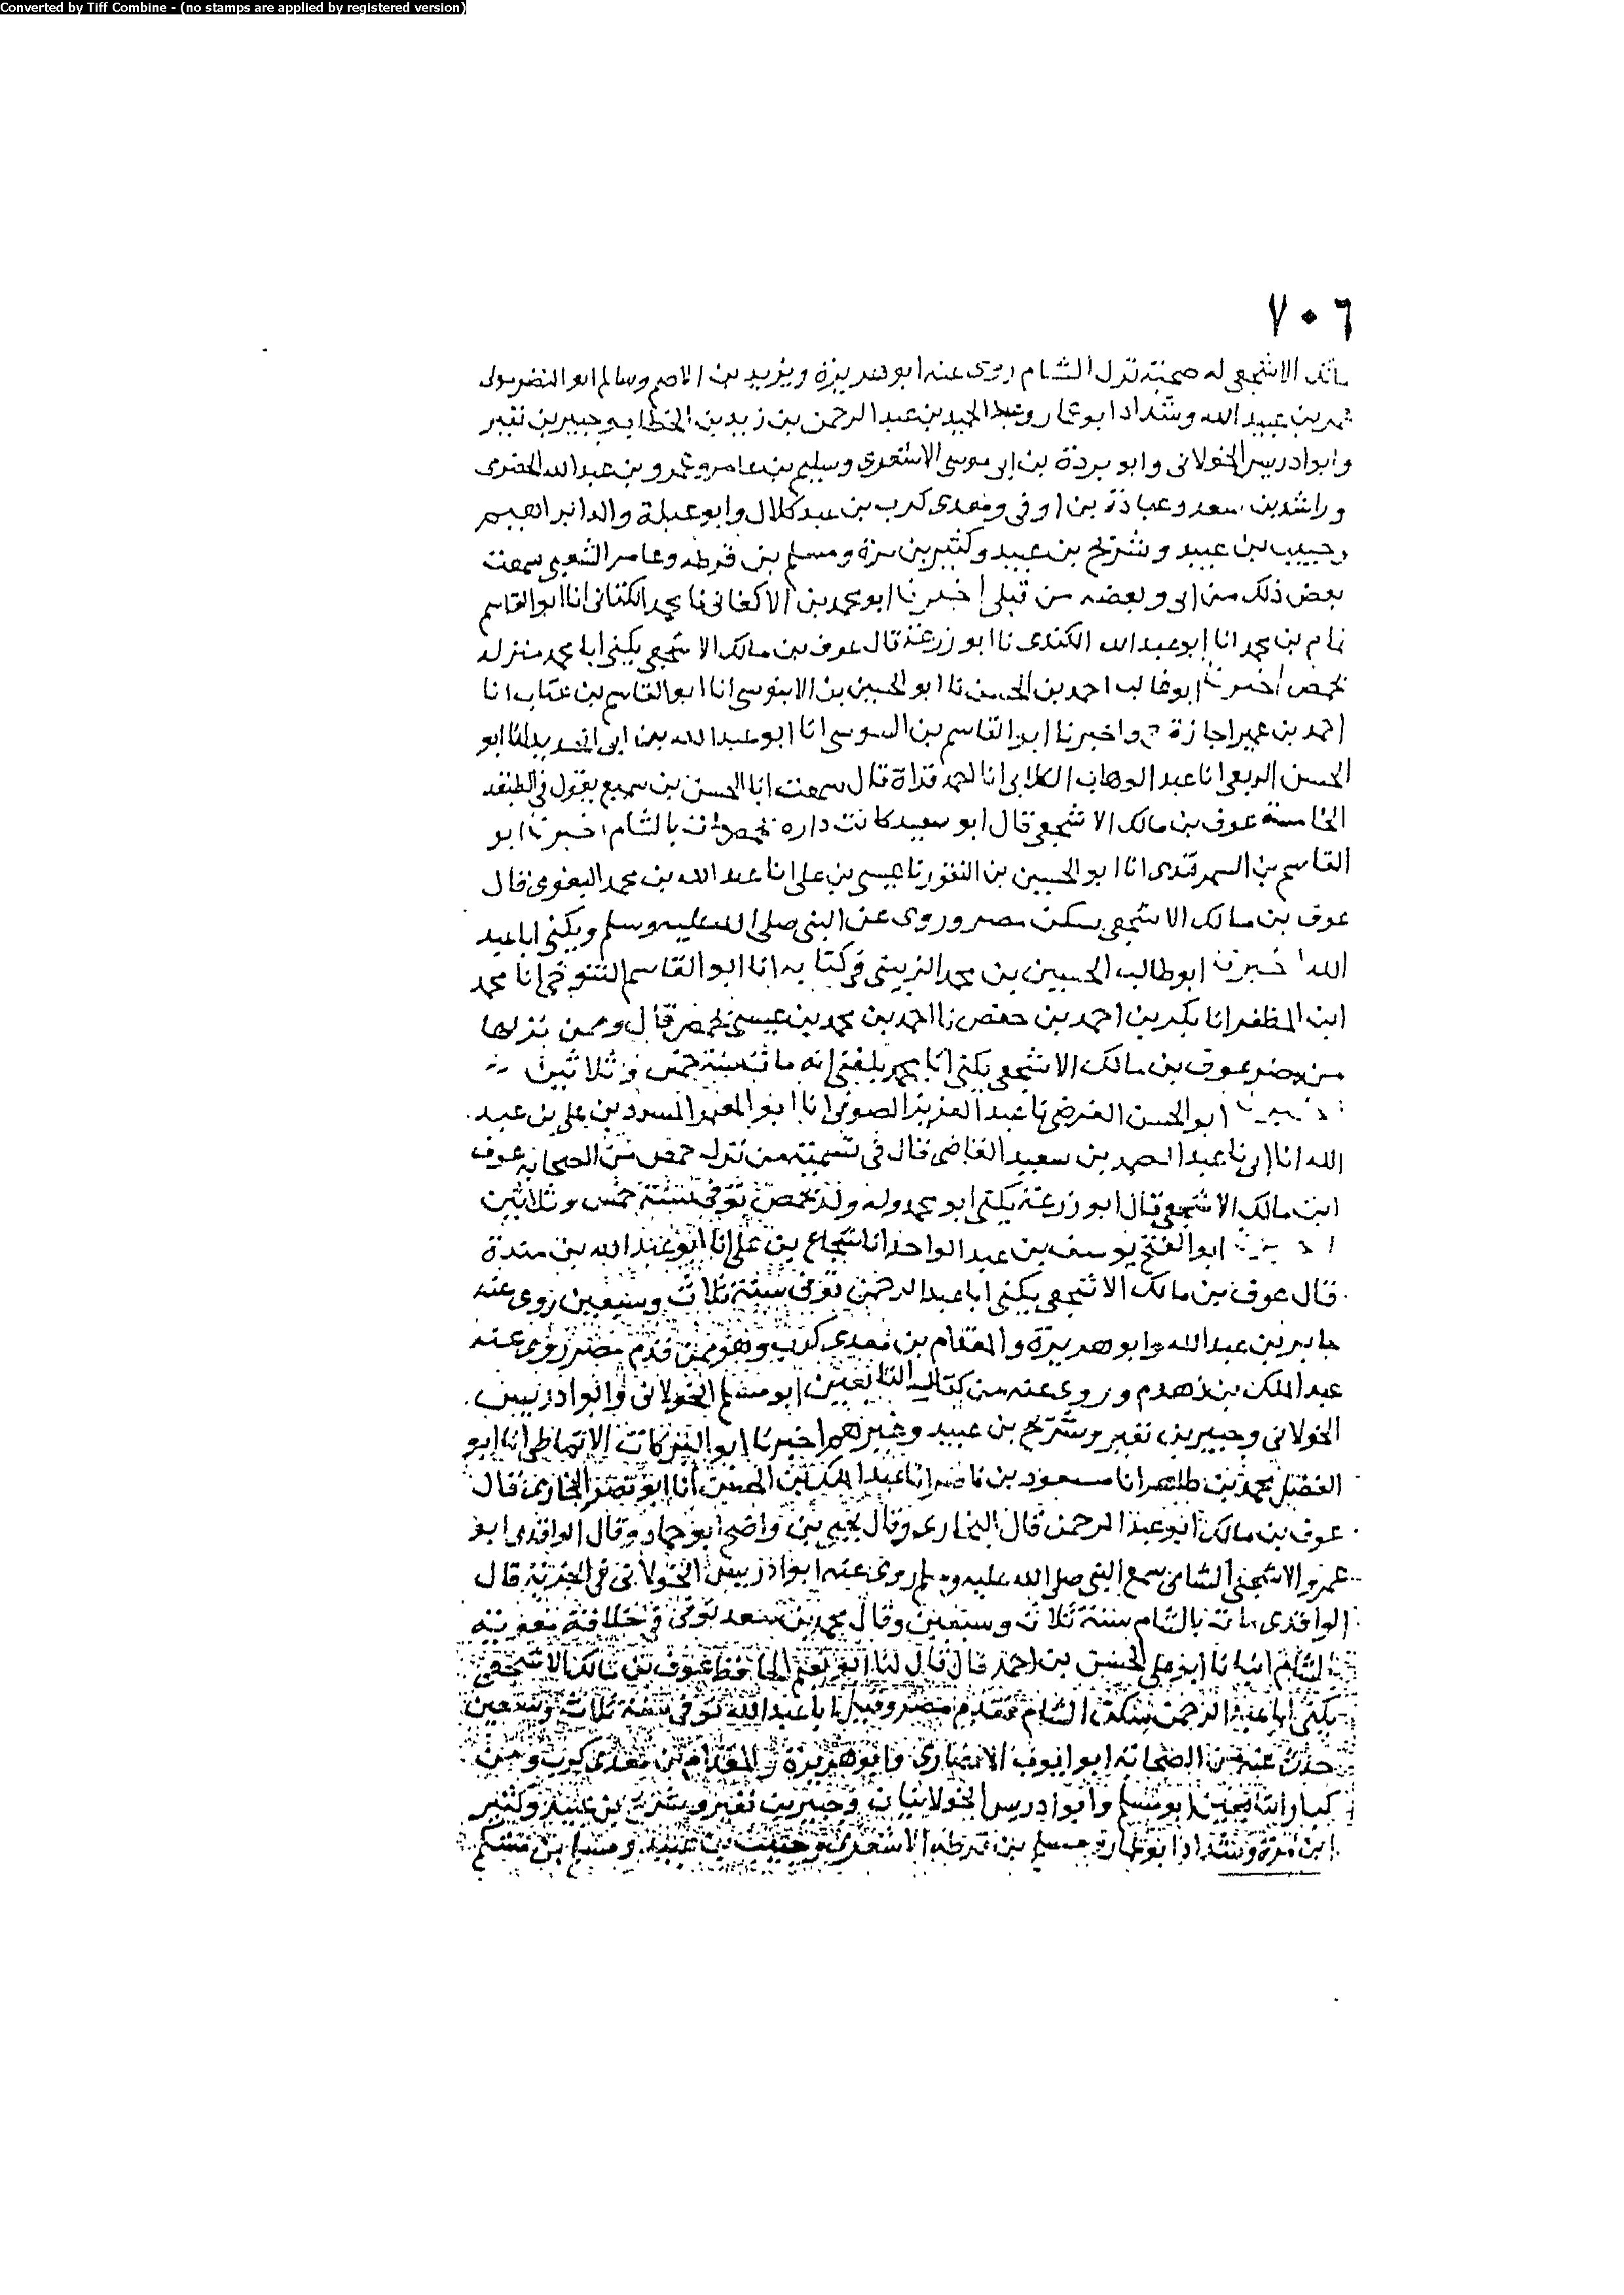 Converted by Tiff Combine - (no stamps are applied by registered version)
٧٠٦
مالك الاشجعي له صحبة نزل الشام روى عنه ابو هريرة ويزيد بن الاصم وسالم ابو النضر مولى
عمر بن عبيد الله وشداد ابو عمار وعبد الحميد بن عبد الرحمن بن زيد بن الخطاب وجبير بن نفير
وابو ادريس الخولاني وابو بردة بن ابي موسى الاشعري وسليم بن عامر وعمرو بن عبد الله الحضرمى
وراشد بن سعد وعبادة بن اوفى ومعدى كرب بن عبد كلال وابو عبلة والد ابراهيم
وحبيب بن عبيد وشريح بن عبيد وكثير بن مرة ومسلم بن قرظه وعامر الشعبي سمعت
بعض ذلك من ابى وبعضه من قبلى اخبرنا ابو محمد بن الاكفانى نا محمد الكتانى انا ابو القاسم
تمام بن محمد انا ابو عبد الله الكندى نا ابو زرعة قال عوف بن مالك الاشجعي يكنى ابا محمد منزله
بحمص اخبرنا ابو غالب احمد بن الحسن نا ابو الحسين بن الابنوسى انا ابو القاسم بن عتاب انا
احمد بن عمير اجازة ح واخبرنا ابو القاسم بن السوسى انا ابو عبد الله بن ابى الحديد انا ابو
الحسن الربعى انا عبد الوهاب الكلابى انا احمد قراة قال سمعت ابا الحسن بن سميع يقول فى الطبقه
الخامسة عوف بن مالك الاشجعي قال ابو سعيد كانت داره بحمص مات بالشام اخبرنا ابو
القاسم بن السمرقندى انا ابو الحسين بن النقور نا عيسى بن على انا عبد الله بن محمد البغوى قال
عوف بن مالك الاشجعي سكن مصر وروى عن النبى صلى الله عليه وسلم ويكنى ابا عبد
الله اخبرنا ابو طالب الحسين بن محمد الزينبى فى كتابه انا ابو القاسم التنوخى انا محمد
ابن المظفر انا بكر بن احمد بن حفص نا احمد بن محمد بن عيسى بحمص قال وممن نزلها
من مضر عوف بن مالك الاشجعي يكنى ابا محمد بلغنى انه مات سنة خمس وثلاثين
اخبرنا ابو الحسن الفرضى نا عبد العزيز الصوفى انا ابو المعمر المسدد بن على بن عبد
الله انا ابى نا عبد الصمد بن سعيد القاضى قال فى تسمية من نزل حمص من الصحابة عوف
ابن مالك الاشجعي قال ابو زرعة يكنى ابو محمد وله ولد بحمص توفى سنة خمس وثلاثين
اخبرنا ابو الفتح يوسف بن عبد الواحد انا شجاع بن على انا ابو عبد الله بن مندة
قال عوف بن مالك الاشجعي يكنى ابا عبد الرحمن توفى سنة ثلاث وسبعين روى عنه
جابر بن عبد الله وابو هريرة والمقدام بن معدي كرب وهو ممن قدم مصر روى عنه
عبد الملك بن زهدم وروى عنه من كبار التابعين ابو مسلم الخولانى وابو ادريس
الخولاني وجبير بن نفير وشريح بن عبيد وغيرهم اخبرنا ابو البركات الانماطى انا ابو
الفضل محمد بن طاهر انا مسعود بن ناصر انا عبد الملك بن الحسن انا ابو نصر البخارى قال
عوف بن مالك ابو عبد الرحمن قال البخارى وقال يحيى بن واضح ابو حماد وقال الواقدى ابو
عمرو الاشجعى الشامى سمع النبى صلى الله عليه وسلم روى عنه ابو ادريس الخولانى فى الجزية قال
الواقدى مات بالشام سنة ثلاث وسبعين وقال محمد بن سعد توفى فى خلافة معوية
بالشام انبانا ابو على الحسن بن احمد قال قال لنا ابو نعيم الحافظ عوف بن مالك الاشجعي
يكنى ابا عبد الرحمن سكن الشام وقدم مصر وقيل ابا عبد الله توفى سنة ثلاث وسبعين
حدث عنه من الصحابة ابو ايوب الانصارى وابو هريرة والمقدام بن معدي كرب ومن
كبار التابعين ابو مسلم وابو ادريس الخولانيان وجبير بن نفير وشريح بن عبيد وكثير
ابن مرة وشداد ابو عمار ومسلم بن قرظه الاشجعى وحبيب بن عبيد ومسلم بن مشكم